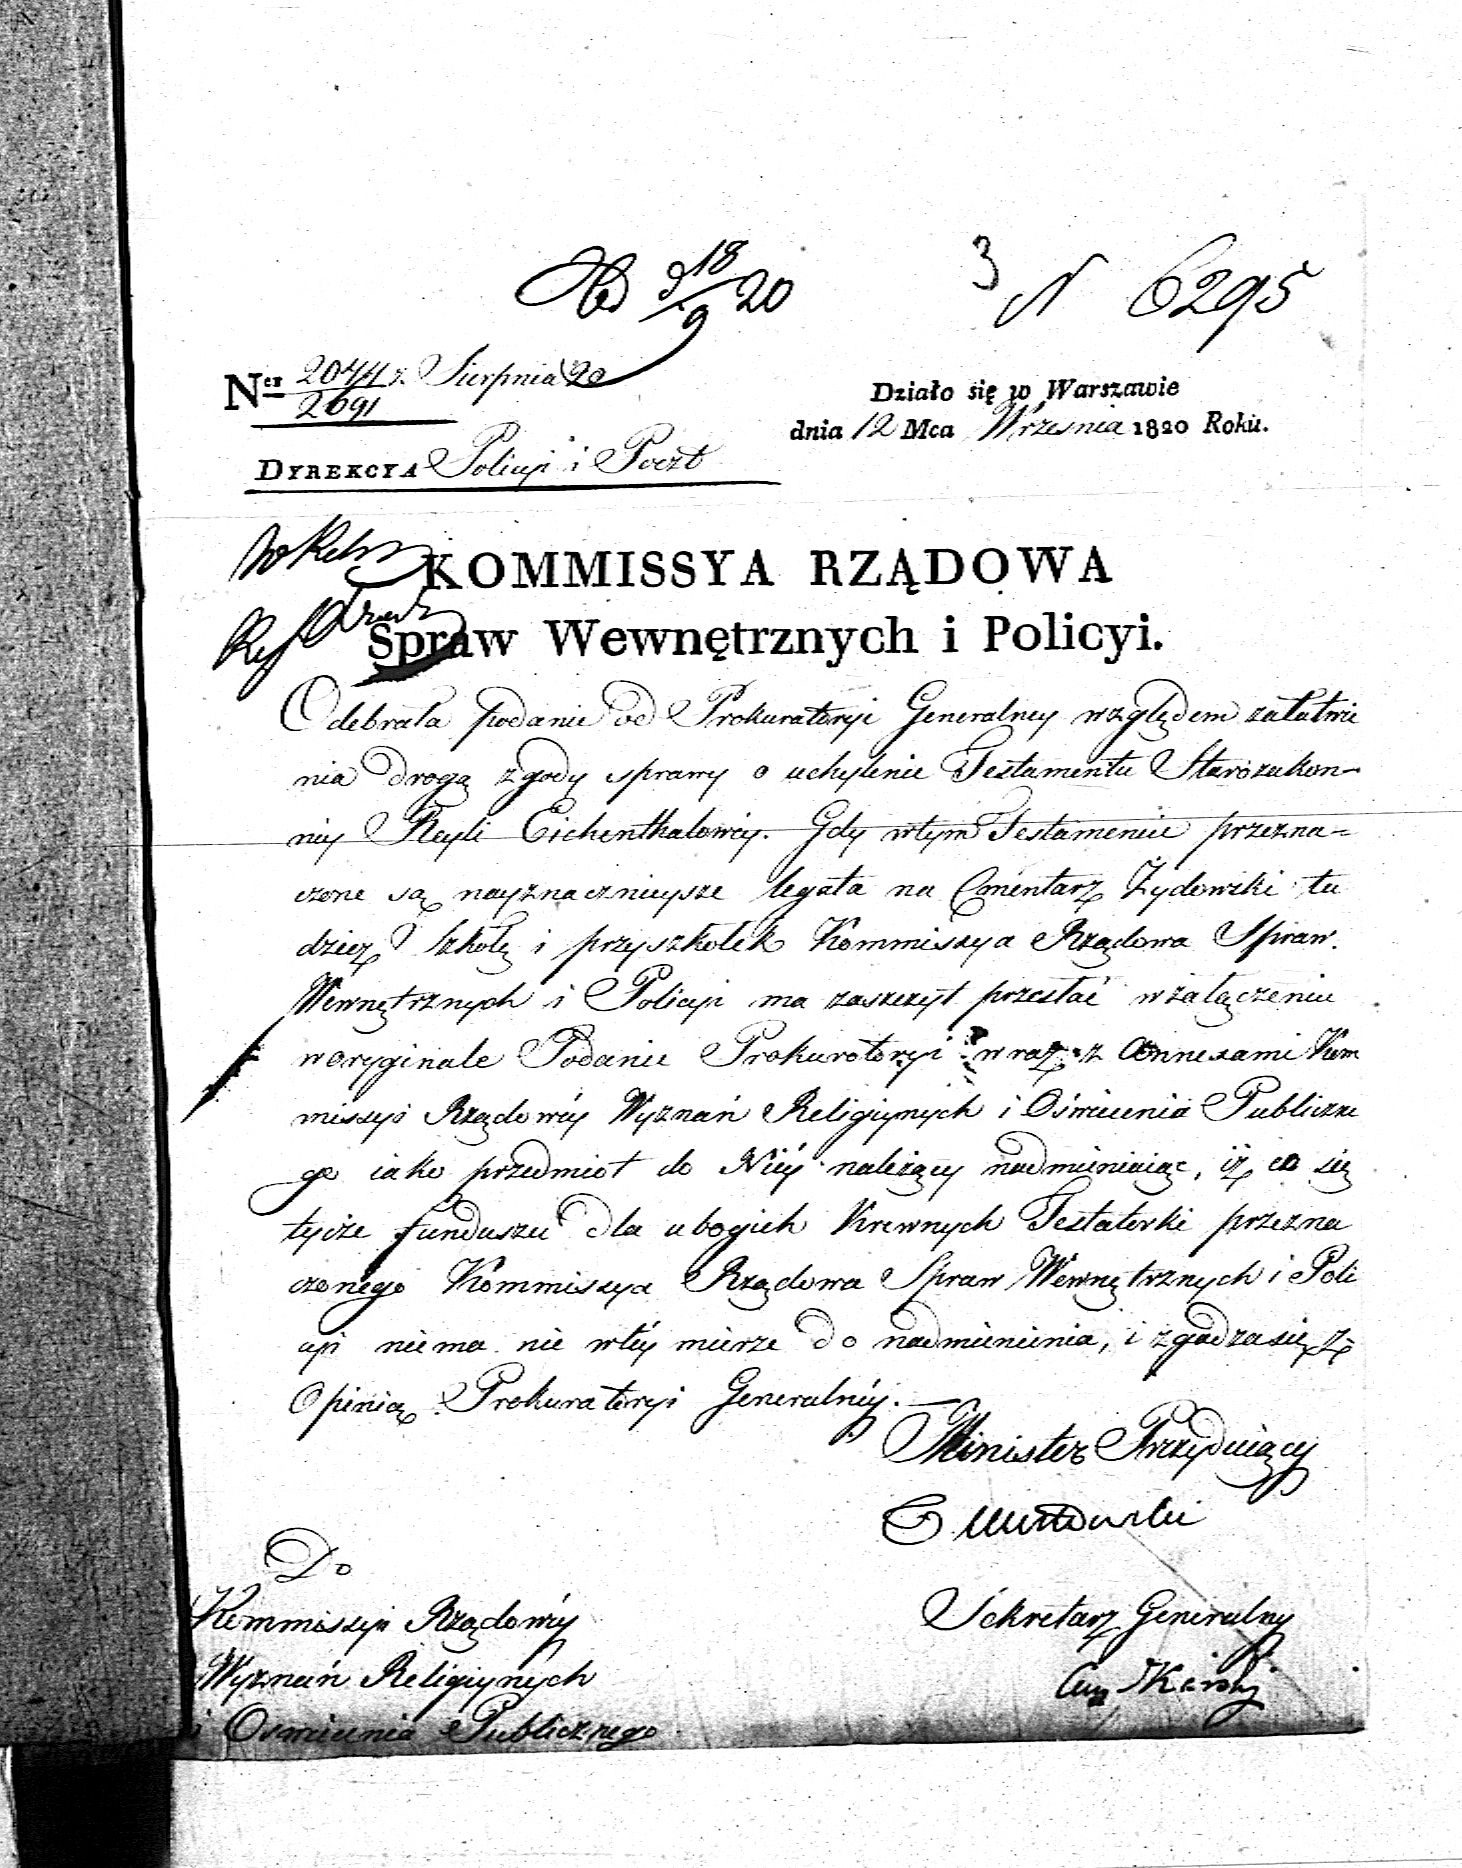 Od d 18/9 20
3 N 6295
Ner 2044/2691 z Sierpnia 20
Działo się w Warszawie
dnia 12 Mca Września 1820 Roku.
DYREKCYA Policyi i Poczt
KOMMISSYA RZĄDOWA
Spraw Wewnętrznych i Policyi.
Odebrała podanie od Prokuratoryi Generalney względem załatwie
nia drogą zgody sprawy o uchylenie Testamentu Starozakon-
ney Reyli Eichenthalowey. Gdy w tym Testamencie przezna-
czone są nayznacznieysze legata na Cmentarz Żydowski tu
dzież Szkołę i przyszkołek Kommissya Rządowa Spraw.
Wewnętrznych i Policyi ma zaszczyt przesłać w załączeniu
w oryginale Podanie Prokuratoryi wraz z Annexami Kom
missyi Rządowéy Wyznań Religiynych i Oświecenia Publiczne
go iako przedmiot do Niéy należący nadmieniaiąc, iż co się
tycze funduszu dla ubogich Krewnych Testatorki przezna
czonego Kommissya Rządowa Spraw Wewnętrznych i Poli
cyi niema nic w téy mierze do nadmienienia, i zgadza się z
Opinią Prokuratoryi Generalnéy.
Minister Prezyduiący
T Mostowski
Do
Kommissyi Rządowéy
Wyznań Religiynych
i Oświecenia Publicznego
Sekretarz Generalny
Aug Karski